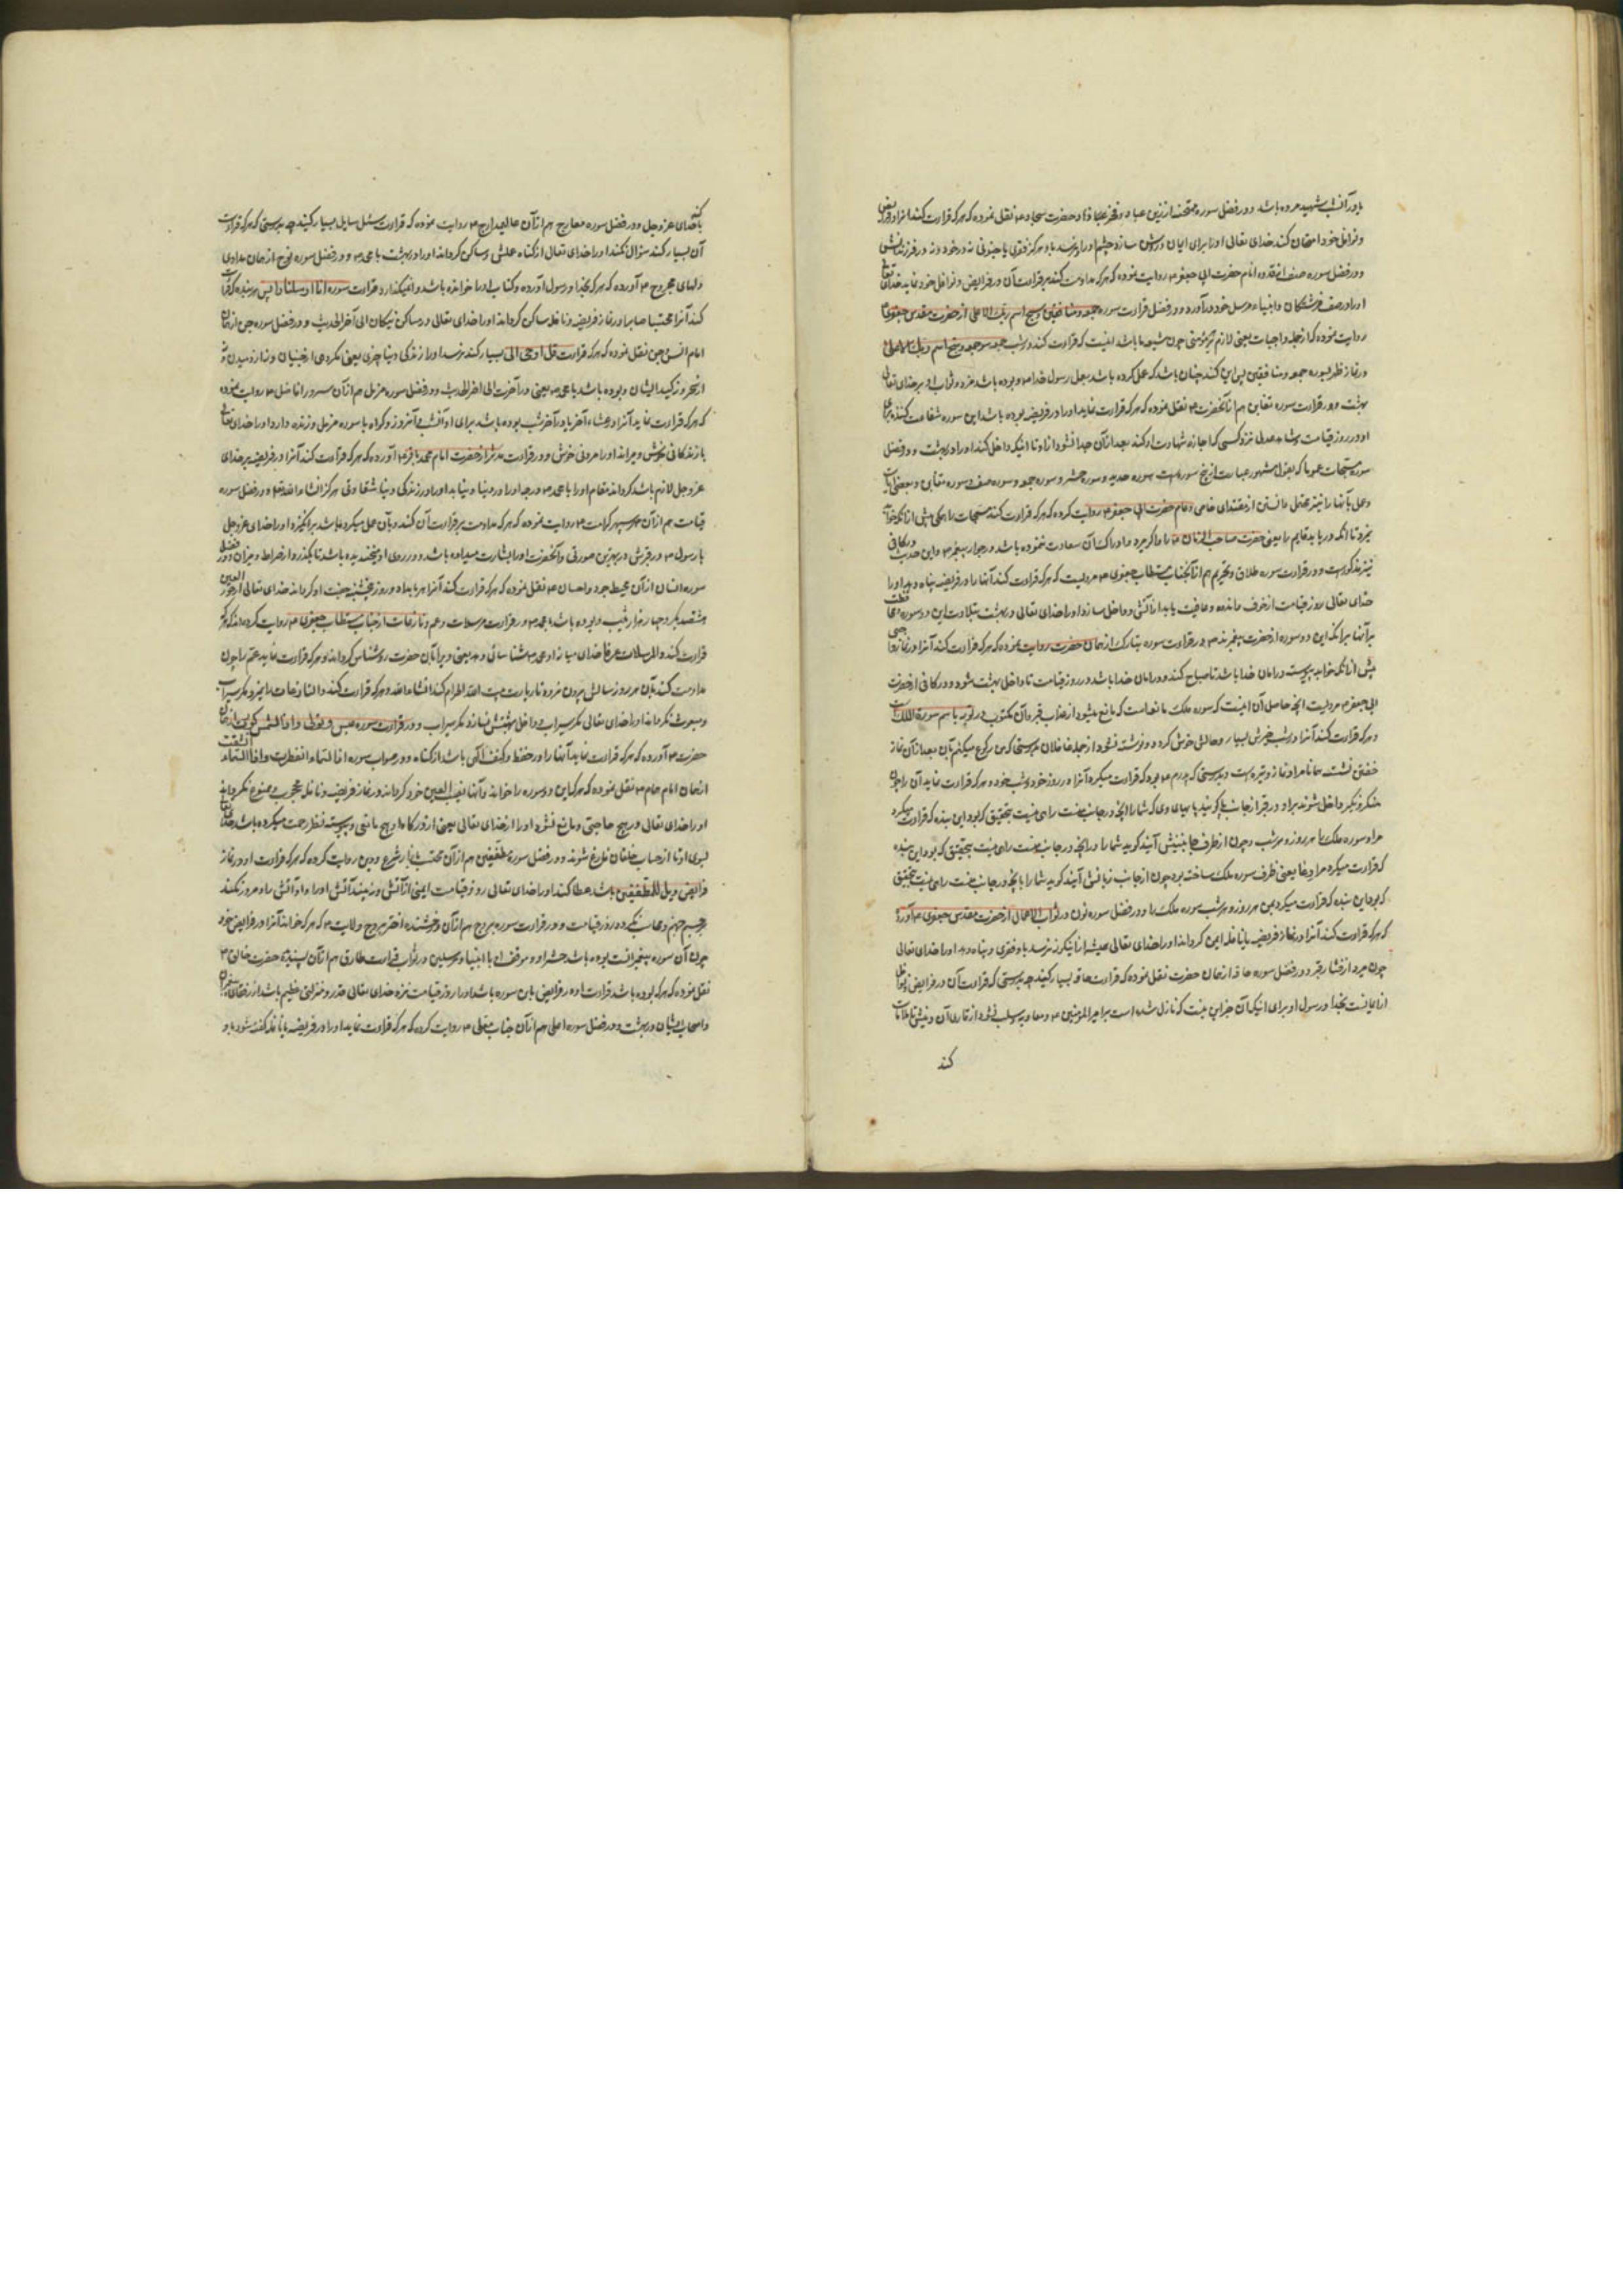 یا در آنشب شهید مرده باشد و در فضل سوره ممتحنه از زین عباد و فخر عباد حضرت سجاد ع نقل نموده که هر که قرائت کند آنرا در فرایض
و نوافل خود امتحان کند خدای تعالی او را برای ایمان و روشن سازد چشم او را و نرسد باو هرگز فقری یا جنونی نه در خود و نه در فرزندانش
و در فضل سوره صف از قدوه انام حضرت ابی جعفر ع روایت نموده که هر که مداومت کند بر قرائت آن در فرایض و نوافل خود نماید خدای تعالی
او را در صف فرشتگان و انبیاء مرسل خود در آورد و در فضل قرائت سوره جمعه و منافقین و سبح اسم ربک الاعلی از حضرت مقدس جعفری ع
روایت نموده که از جمله واجبات یعنی لازم بر مؤمنی چون شیعه ما باشد اینست که قرائت کند در شب جمعه سوره جمعه و سبح اسم ربک الاعلی
و در نماز ظهر سوره جمعه و منافقین پس این کند چنان باشد که عمل کرده باشد بعمل رسول خدا ص و بوده باشد مزد و ثواب او بر خدای تعالی
بهشت و در قرائت سوره تغابن هم از آنحضرت ع نقل نموده که هر که قرائت نماید او را در فریضه بوده باشد این سوره شفاعت کننده برای
او در روز قیامت و شاهد عدلی نزد کسی که اجازه شهادت او کند بعد از آن جدا نشود از او تا اینکه داخل کند او را در بهشت و در فضل
سوره مسبحات عموما که بقول مشهور عبارت از پنج سوره است سوره حدید و سوره حشر و سوره جمعه و سوره صف و سوره تغابن
از مقتدای خاص و عام حضرت ابی جعفر ع روایت کرده که هر که قرائت کند مسبحات را همگی پیش از آنکه خواب
نمیرد تا آنکه دریابد قایم ما یعنی حضرت صاحب الزمان ع را و اگر بمیرد و ادراک آن سعادت ننموده باشد در جوار پیغمبر ص و این حدیث در کافی
نیز مذکور است و در قرائت سوره طلاق و تحریم هم از آنجناب مستطاب جعفری ع مرویست که هر که قرائت کند آنها را در فریضه پناه دهد او را
خدای تعالی روز قیامت از خوف و اندوه و عافیت یابد از آتش و داخل سازد او را خدای تعالی در بهشت بتلاوت این دو سوره
بر آنها برای آنکه این دو سوره از حضرت پیغمبرند ص و در قرائت سوره تبارک از همان حضرت روایت نموده که هر که قرائت کند آنرا در نماز
پیش از آنکه خوابد پیوسته در امان خدا باشد تا صباح کند و در امان خدا باشد در روز قیامت تا داخل بهشت شود و در کافی از حضرت
ابی جعفر ع مرویست آنچه حاصل آن اینست که سوره ملک مانعه است که مانع میشود از عذاب قبر و آن مکتوب در توریة باسم سورة الملک است
و هر که قرائت کند آنرا در شب خیرش بسیار و حالش خوش گردد و نوشته نشود از جمله غافلان بدرستی که من رکوع میکنم بآن بعد از آن نماز
خفتن نشسته و بدرستی که پدرم ع بود که قرائت میکرد آنرا در روز خود و شب خود و هر که قرائت نماید آن را چون
منکر و نکیر داخل شوند بر او در قبر از جانب پا گویند پاهای وی که شما را آنچه در جانب منست راهی نیست بتحقیق که بود این بنده که قرائت میکرد
مرا و سوره ملک را هر روز و هر شب و چون از طرف آیند گوید شما را در آنچه در جانب منست راهی نیست بتحقیق که بود این بنده
که قرائت میکرد مرا و یعنی ظرف سوره ملک ساخته بود چون از جانب زبانش آیند گوید شما را بآنچه در جانب منست راهی نیست بتحقیق
که بود این بنده که قرائت میکرد بمن هر روز و هر شب سوره ملک را و در فضل سوره نون در ثواب الاعمال از حضرت مقدس جعفری ع آورده
که هر که قرائت کند آنرا در نماز فریضه یا نافله ایمن گرداند او را خدای تعالی همیشه از اینکه نرسد باو فقری و پناه دهد او را خدای تعالی
چون میرد از فشار قبر و در فضل سوره حاقه از همان حضرت نقل نموده که قرائت حاقه بسیار کنید چه بدرستی که قرائت آن در فرایض و نوافل
از ایمانست بخدا و رسول او برای اینکه آن جز این نیست که نازل شده است بر امیر المؤمنین ع و معاویه و سلب نشود از قاری آن دینش تا ملاقات
کند
کند
باخدای عز و جل و در فضل سوره معارج هم از آن عالیمدارج ع روایت نموده که قرائت سئل سایل بسیار کنید چه بدرستی که هر که قرائت
آن بسیار کند سؤال نکند او را خدای تعالی از گناه عملش و ساکن گرداند او را در بهشت با محمد ص و در فضل سوره نوح از همان مداوی
دلهای مجروح ع آورده که هر که بخدا و رسول آورده و کتاب او را خوانده باشد وا نمیگذارد قرائت سوره انا ارسلنا را پس هر بنده که قرائت
کند آنرا محتسبا صابرا در نماز فریضه و نافله ساکن گرداند او را خدای تعالی در مساکن نیکان الی آخر الحدیث و در فضل سوره جن از همان
امام انس و جن نقل نموده که هر که قرائت قل اوحی الی بسیار کند نرسد او را از زندگی دنیا چیزی یعنی مکروهی از جنیان و نه از دمیدن و نه
از سحر و نه کید ایشان و بوده باشد با محمد ص یعنی در آخرت الی آخر الحدیث و در فضل سوره مزمل هم از آن سرور افاضل ع روایت نموده
که هر که قرائت نماید آنرا در عشاء آخر یا در آخر شب بوده باشد برای او آنشب و آنروز دو گواه با سوره مزمل و زنده دارد او را خدای تعالی
با زندگانی خوش و میراند او را مردنی خوش و در قرائت مدثر از حضرت امام محمد باقر ع آورده که هر که قرائت کند آنرا در فریضه بر خدای
عز و جل لازم باشد که گرداند مقام او را با محمد ص در درجه او را در دنیا و نیابد او را در زندگی دنیا شقاوتی هرگز انشاء الله تع و در فضل سوره
قیامت هم از آن سپهر کرامت ع روایت نموده که هر که مداومت بر قرائت آن کند و بآن عمل میکرده باشد برانگیزد او را خدای عز و جل
با رسول ص از قبرش در بهترین صورتی و آنحضرت او را بشارت میداده باشد و در روی او میخندیده باشد تا بگذرد از صراط و میزان و در فضل
سوره انسان از آن محیط جود و احسان ع نقل نموده که هر که قرائت کند آنرا هر بامداد روز پنجشنبه جفت او گرداند خدای تعالی از حور العین
هشتصد بکر و چهار هزار ثیب و بوده باشد با محمد ص و در قرائت مرسلات و عم و نازعات از جناب مستطاب جعفری ع روایت کرده اند که هر که
قرائت کند و المرسلات عرفا خدای میانه او و محمد ص شناسائی دهد یعنی ویرا بآن حضرت روشناس گرداند و هر که قرائت نماید عم را چون
مداومت کند بآن هر روز سالش بیرون نرود تا زیارت بیت الله الحرام کند انشاء الله و هر که قرائت کند و النازعات را نمیرد مگر سیراب
و مبعوث نگرداند او را خدای تعالی مگر سیراب و داخل بهشتش نسازد مگر سیراب و در قرائت سوره عبس و تولی و اذا الشمس کورت از همان
حضرت ع آورده که هر که قرائت نماید آنها را در حفظ و کنف الهی باشد از گناه و در ثواب سوره اذا السماء انفطرت و اذا السماء انشقت
از همان امام همام ع نقل نموده که هر که این دو سوره را خواند و آنها نصب العین خود گرداند در نماز فریضه و نافله محجوب و ممنوع نگرداند
او را خدای تعالی در هیچ حاجتی و مانع نشود او را از خدای تعالی یعنی از درگاه او هیچ مانعی و پیوسته نظر رحمت میکرده باشد خدای تعالی
بسوی او تا از حساب خلقان فارغ شوند و در فضل سورهٔ مطففین هم از آن محتسب بازار شرع و دین روایت کرده که هر که قرائت او در نماز
فرایض ویل للمطففین باشد عطا کند او را خدای تعالی روز قیامت ایمنی از آتش و نه بیند آتش او را و او آتش را و مرور نکند
بر جسر جهنم و حساب نکرده روز قیامت و در قرائت سوره بروج هم از آن درخشنده اختر بروج ولایت ع که هر که خواند آنرا در فرایض خود
چون آن سوره پیغمبرانست بوده باشد حشر او و موقف او با انبیا و مرسلین و در ثواب قرائت طارق هم از آن پسندیده حضرت خالق ع
نقل نموده که هر که بوده باشد قرائت او در فرایض باین سوره باشد او را روز قیامت نزد خدای تعالی قدر و منزلتی عظیم باشد از رفقای پیغمبران
و اصحاب ایشان در بهشت و در فضل سوره اعلی هم از آن جناب معلی ع روایت کرده که هر که قرائت نماید او را در فریضه یا نافله گفته شود باو